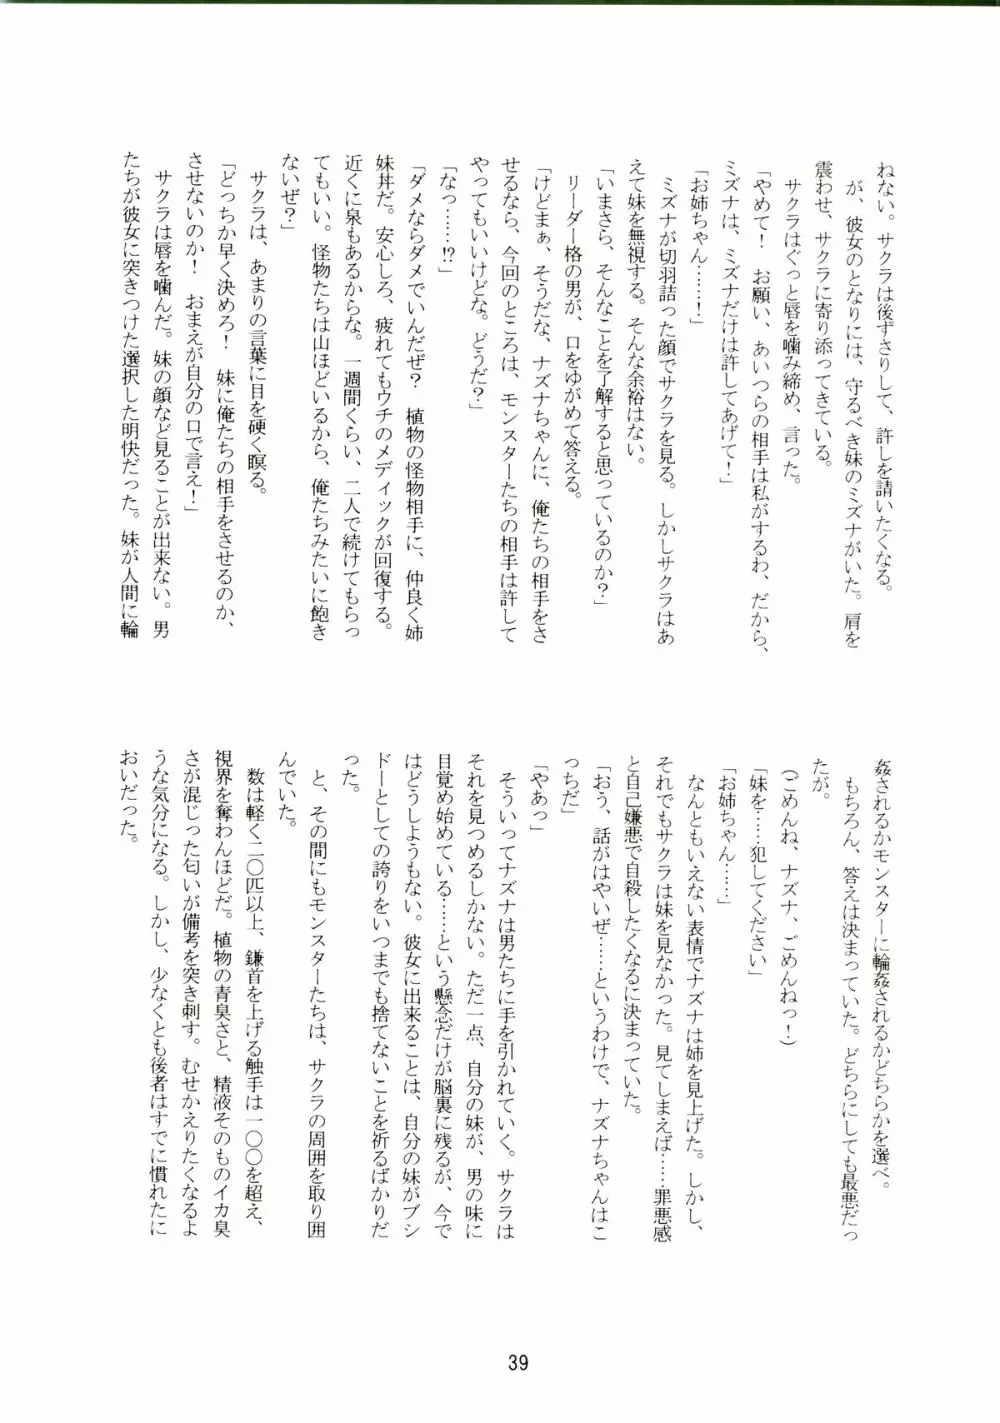 ねない。サクラは後ずさりして、許しを請いたくなる。
が、彼女のとなりには、守るべき妹のミズナがいた。肩を
震わせ、サクラに寄り添ってきている。
サクラはぐっと唇を噛み締め、言った。
「やめて！　お願い、あいつらの相手は私がするわ、だから、
ミズナは、ミズナだけは許してあげて！」
「お姉ちゃん……！」
ミズナが切羽詰った顔でサクラを見る。しかしサクラはあ
えて妹を無視する。そんな余裕はない。
「いまさら、そんなことを了解すると思っているのか？」
リーダー格の男が、口をゆがめて答える。
「けどまぁ、そうだな、ナズナちゃんに、俺たちの相手をさ
せるなら、今回のところは、モンスターたちの相手は許して
やってもいいけどな。どうだ？」
「なっ……!?」
「ダメならダメでいんだぜ？　植物の怪物相手に、仲良く姉
妹丼だ。安心しろ、疲れてもウチのメディックが回復する。
近くに泉もあるからな。一週間くらい、二人で続けてもらっ
てもいい。怪物たちは山ほどいるから、俺たちみたいに飽き
ないぜ？」
サクラは、あまりの言葉に目を硬く瞑る。
「どっちか早く決めろ！　妹に俺たちの相手をさせるのか、
させないのか！　おまえが自分の口で言え！」
サクラは唇を噛んだ。妹の顔など見ることが出来ない。男
たちが彼女に突きつけた選択した明快だった。妹が人間に輪
姦されるかモンスターに輪姦されるかどちらかを選べ。
もちろん、答えは決まっていた。どちらにしても最悪だっ
たが。
（ごめんね、ナズナ、ごめんねっ！）
「妹を……犯してください」
「お姉ちゃん……」
なんともいえない表情でナズナは姉を見上げた。しかし、
それでもサクラは妹を見なかった。見てしまえば……罪悪感
と自己嫌悪で自殺したくなるに決まっていた。
「おう、話がはやいぜ……というわけで、ナズナちゃんはこ
っちだ」
「やあっ」
そういってナズナは男たちに手を引かれていく。サクラは
それを見つめるしかない。ただ一点、自分の妹が、男の味に
目覚め始めている……という懸念だけが脳裏に残るが、今で
はどうしようもない。彼女に出来ることは、自分の妹がブシ
ドーとしての誇りをいつまでも捨てないことを祈るばかりだ
った。
と、その間にもモンスターたちは、サクラの周囲を取り囲
んでいた。
数は軽く二〇匹以上、鎌首を上げる触手は一〇〇を超え、
視界を奪わんほどだ。植物の青臭さと、精液そのものイカ臭
さが混じった匂いが備考を突き刺す。むせかえりたくなるよ
うな気分になる。しかし、少なくとも後者はすでに慣れたに
おいだった。
39